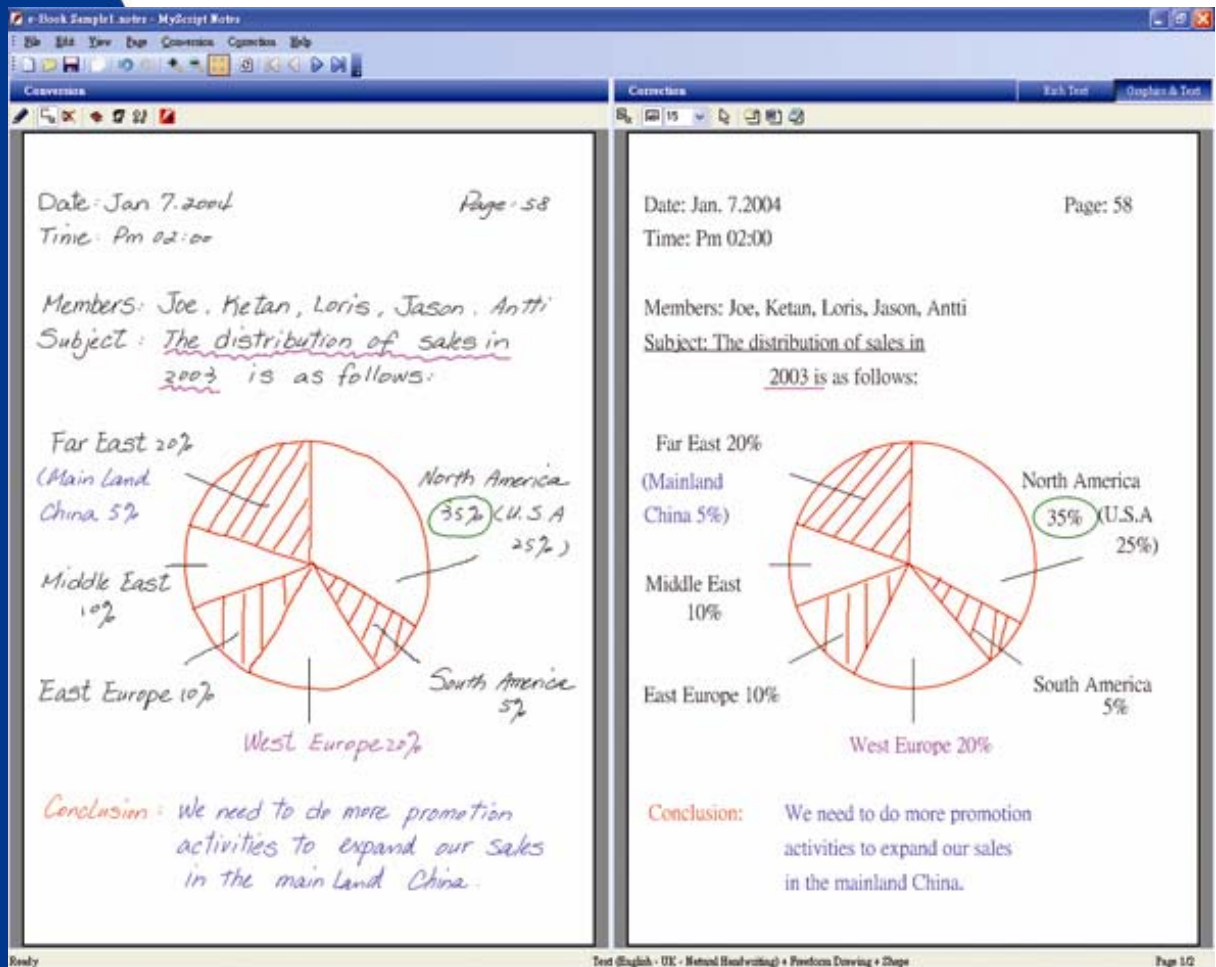 e-Book Sample1.notes - MyScript Notes
File Edit View Page Conversion Correction Help
Conversion
Date: Jan 7.2004 Page: 58
Time: Pm 02:00
Members: Joe, Ketan, Loris, Jason, Antti
Subject: The distribution of sales in
2003 is as follows:
Far East 20%
(Main Land
China 5%
North America
35% (U.S A
25%)
Middle East
10%
East Europe 10%
South America
5%
West Europe 20%
Conclusion: We need to do more promotion
activities to expand our sales
in the main Land China.
Correction Rich Text Graphics & Text
15
Date: Jan. 7.2004 Page: 58
Time: Pm 02:00
Members: Joe, Ketan, Loris, Jason, Antti
Subject: The distribution of sales in
2003 is as follows:
Far East 20%
(Mainland
China 5%)
North America
35% (U.S.A
25%)
Middle East
10%
East Europe 10%
South America
5%
West Europe 20%
Conclusion: We need to do more promotion
activities to expand our sales
in the mainland China.
Ready Text (English - UK - Natural Handwriting) + Freeform Drawing + Shape Page 1/2